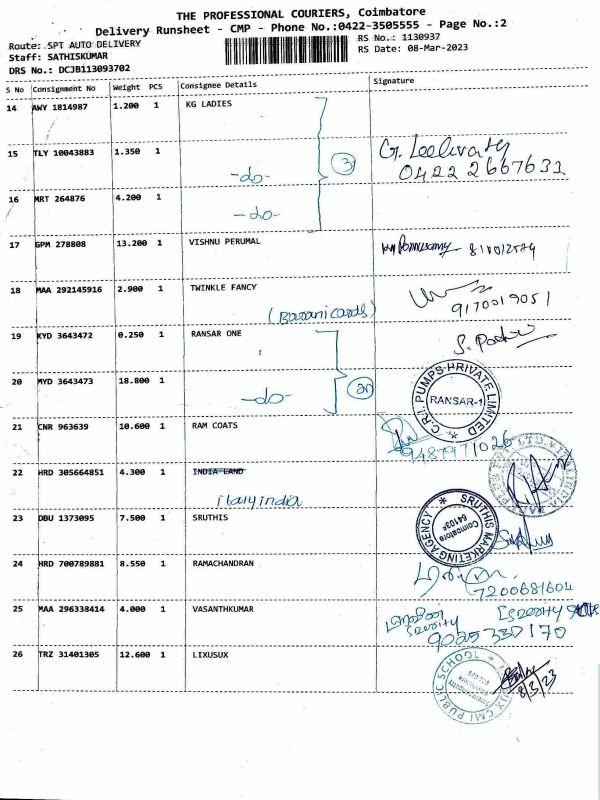 THE PROFESSIONAL COURIERS, Coimbatore
Delivery Runsheet - CMP - Phone No.:0422-3505555 - Page No.:2
Route: SPT AUTO DELIVERY
RS No.: 1130937
Staff: SATHISKUMAR
RS Date: 08-Mar-2023
DRS No.: DCJB113093702
S No Consignment No Weight PCS Consignee Details Signature
14 AWY 1814987 1.200 1 KG LADIES
15 TLY 10043883 1.350 1
-do-
3
G. Leelavathy
0422 2667631
16 MRT 264876 4.200 1
-do-
17 GPM 278808 13.200 1 VISHNU PERUMAL
18 MAA 292145916 2.900 1 TWINKLE FANCY
(Barani cards)
9170019051
19 KYD 3643472 0.250 1 RANSAR ONE
20 MYD 3643473 18.800 1
-do-
C.R.I. PUMPS PRIVATE LIMITED
RANSAR-1
21 CNR 963639 10.600 1 RAM COATS
9487971026
22 HRD 305664851 4.300 1 INDIA LAND
23 DBU 1373095 7.500 1 SRUTHIS
SRUTHIS MARKETING AGENCY
Coimbatore
24 HRD 700789881 8.550 1 RAMACHANDRAN
7200681604
25 MAA 296338414 4.000 1 VASANTHKUMAR
9025 330170
26 TRZ 31401305 12.600 1 LIXUSUX
CMI PUBLIC SCHOOL
8/3/23